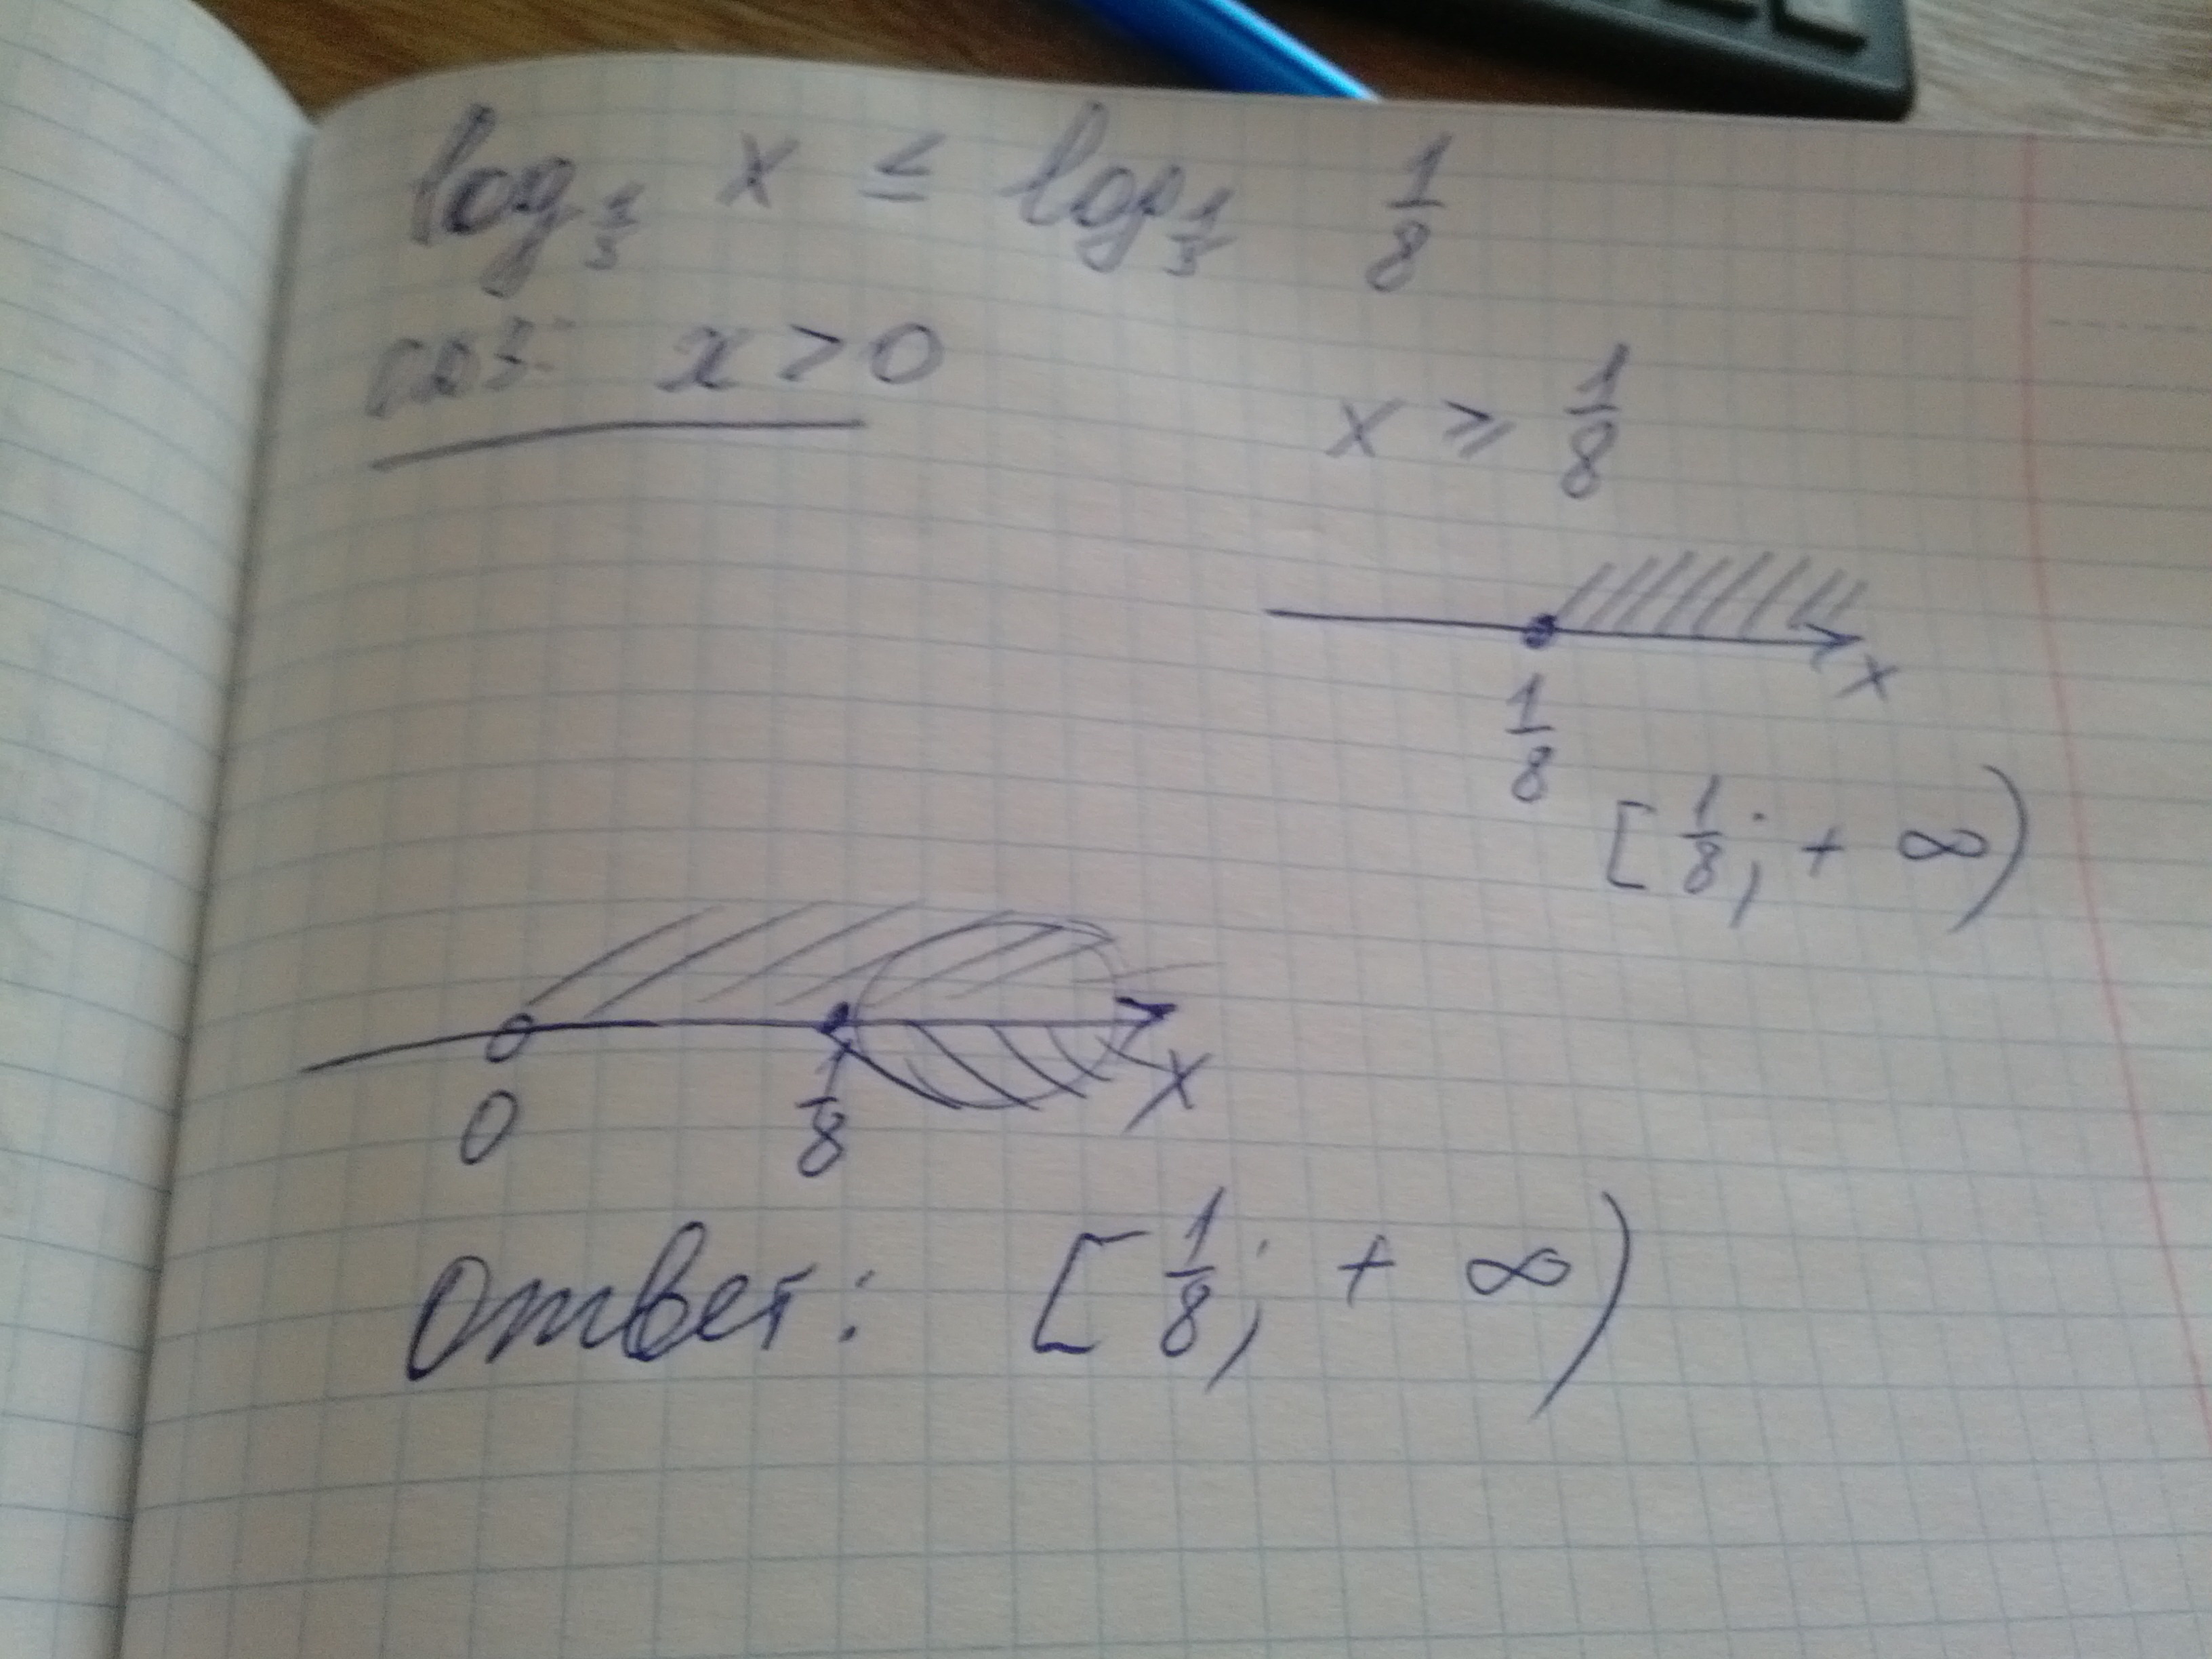 log 1/3 x ≤ log 1/3 1/8
ОДЗ: x > 0
x ≥ 1/8
x
1/8
[1/8; + ∞)
0 1/8 x
Ответ: [1/8; + ∞)